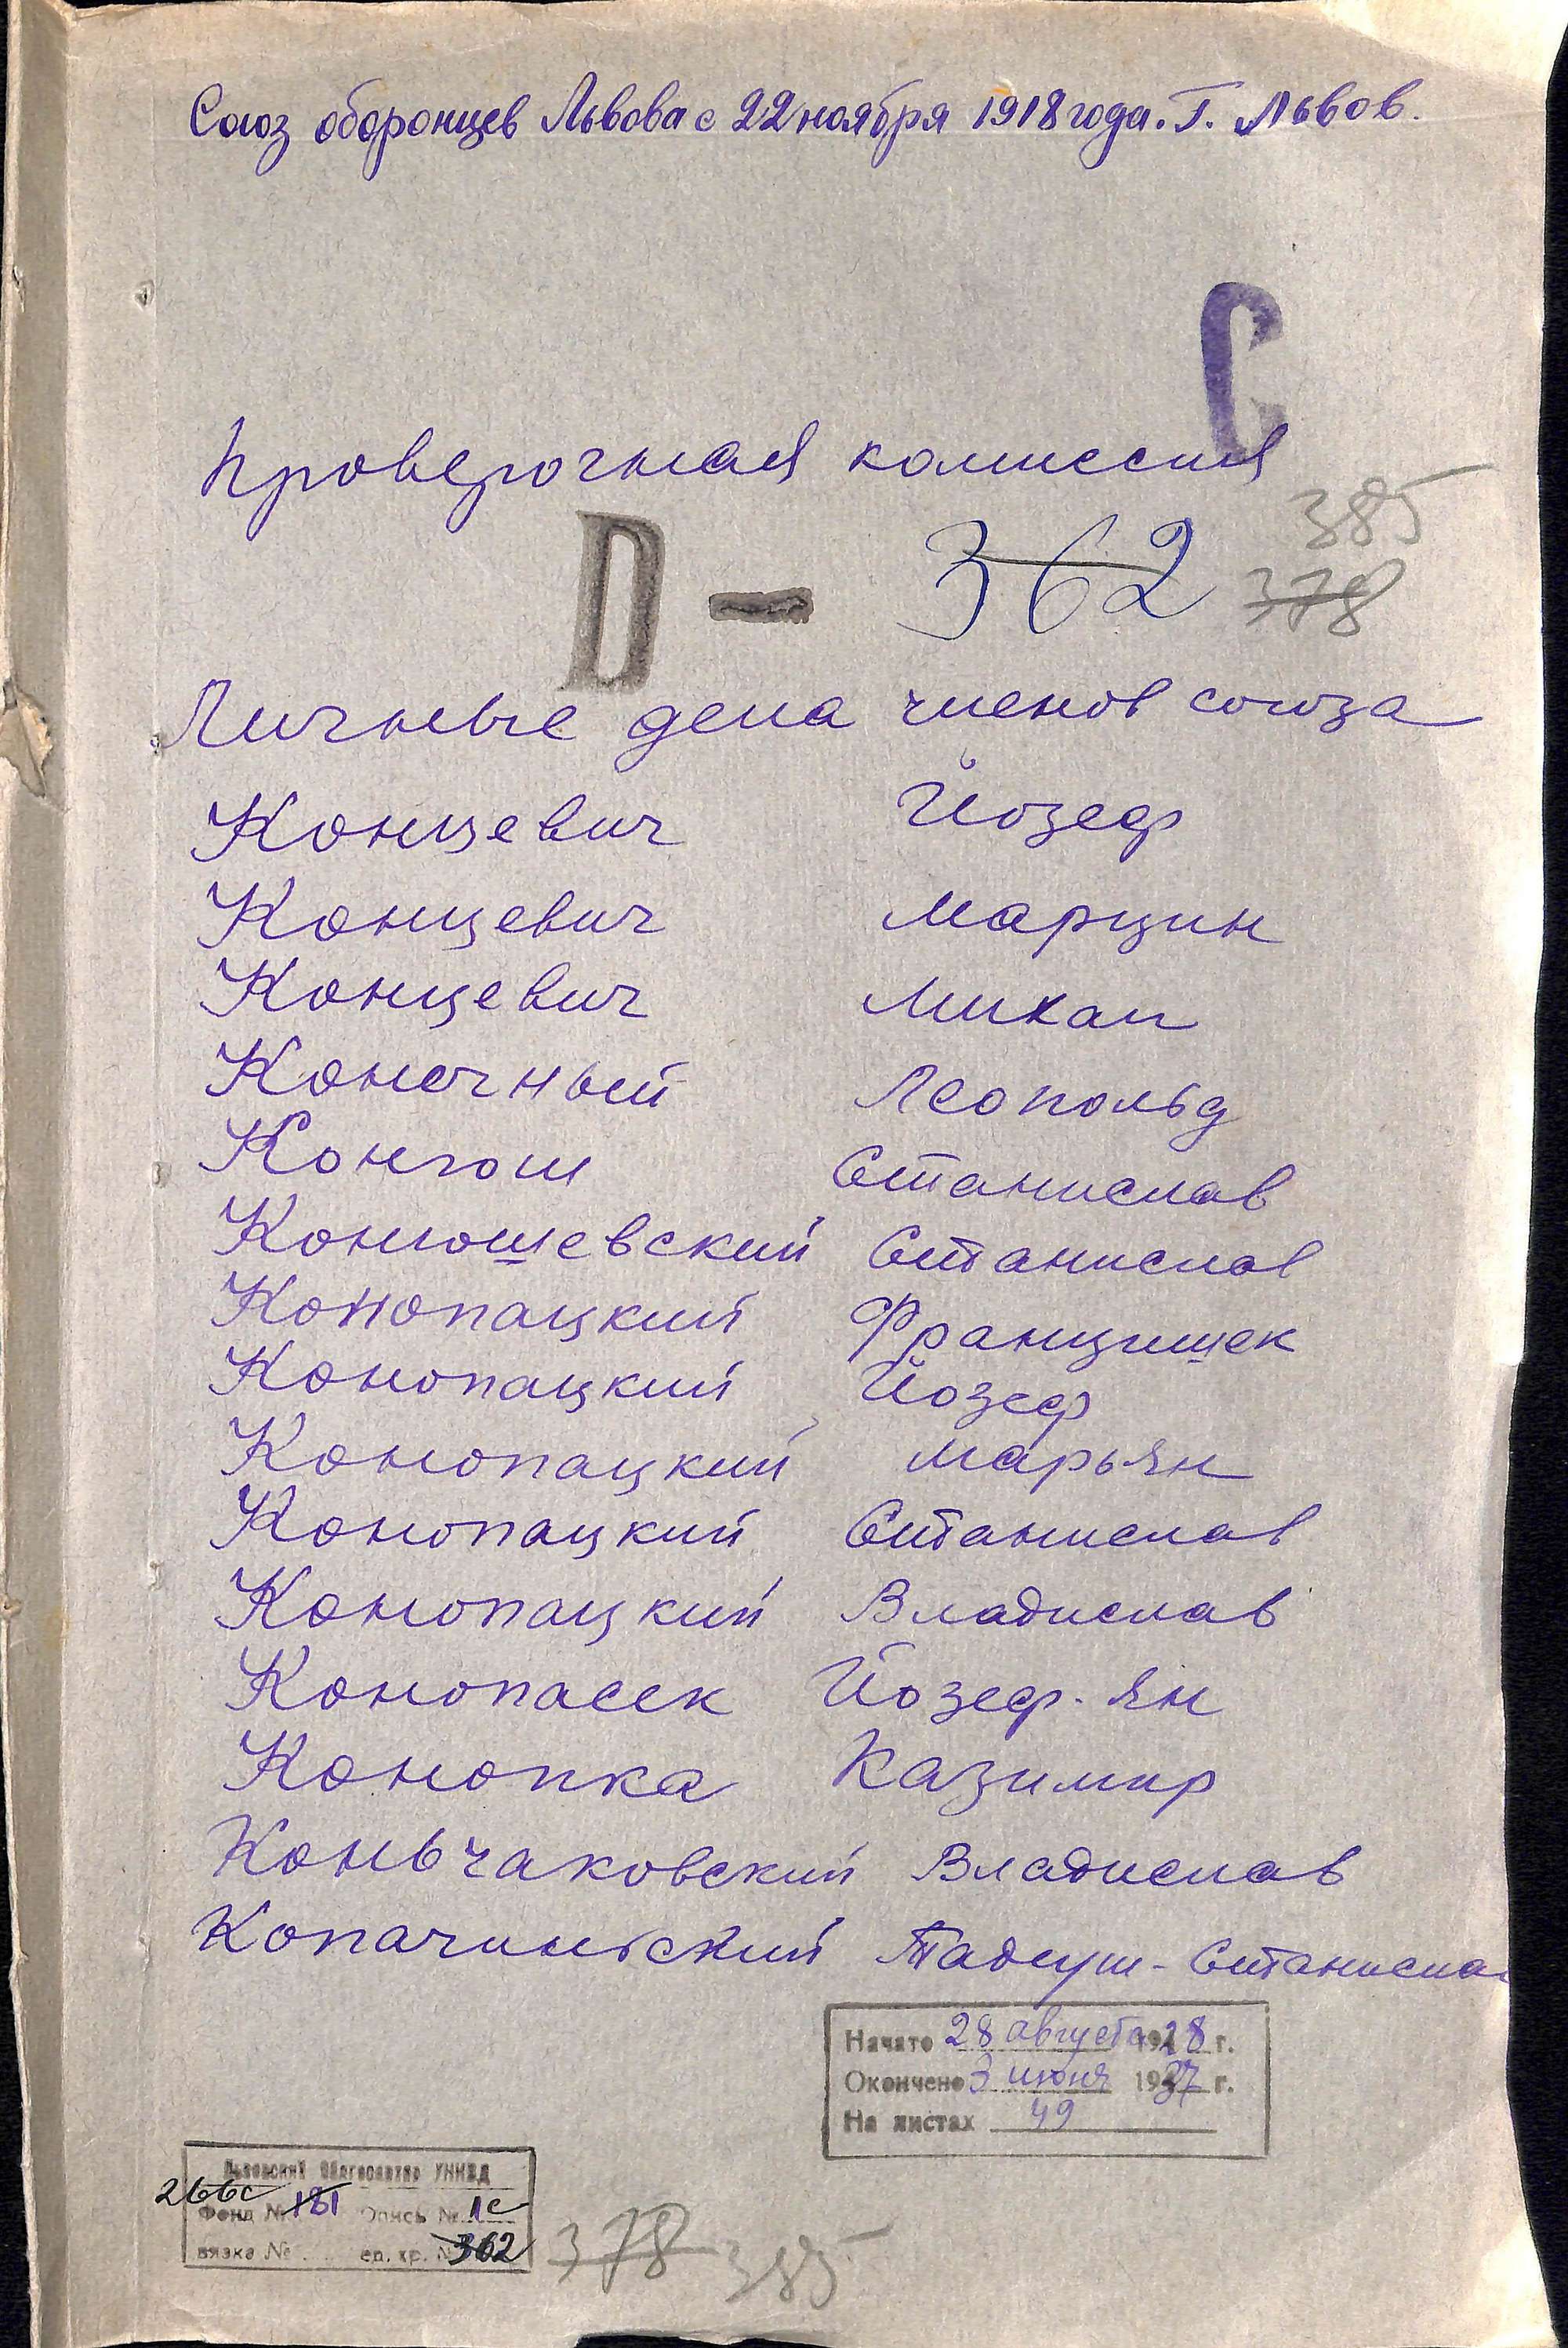 Союз оборонцев Львова с 22 ноября 1918 года. Г. Львов.
С
Проверочная комиссия
385
D - 362 378
Личные дела членов союза
Концевич Йозеф
Концевич Марцин
Концевич Михал
Конечный Леопольд
Конюш Станислав
Конюшевский Станислав
Конопацкий Францишек
Конопацкий Йозеф
Конопацкий Марьян
Конопацкий Станислав
Конопацкий Владислав
Конопасек Йозеф-Ян
Конопка Казимир
Коньчаковский Владислав
Копачиньский Тадеуш-Станислав
Начато 28 августа 1928 г.
Окончено 3 июня 1937 г.
На листах 49
Львовский Облгосархив УНКВД
266с
Фонд № 181 Опись № 1с
вязка № ед. хр. № 362
378 385